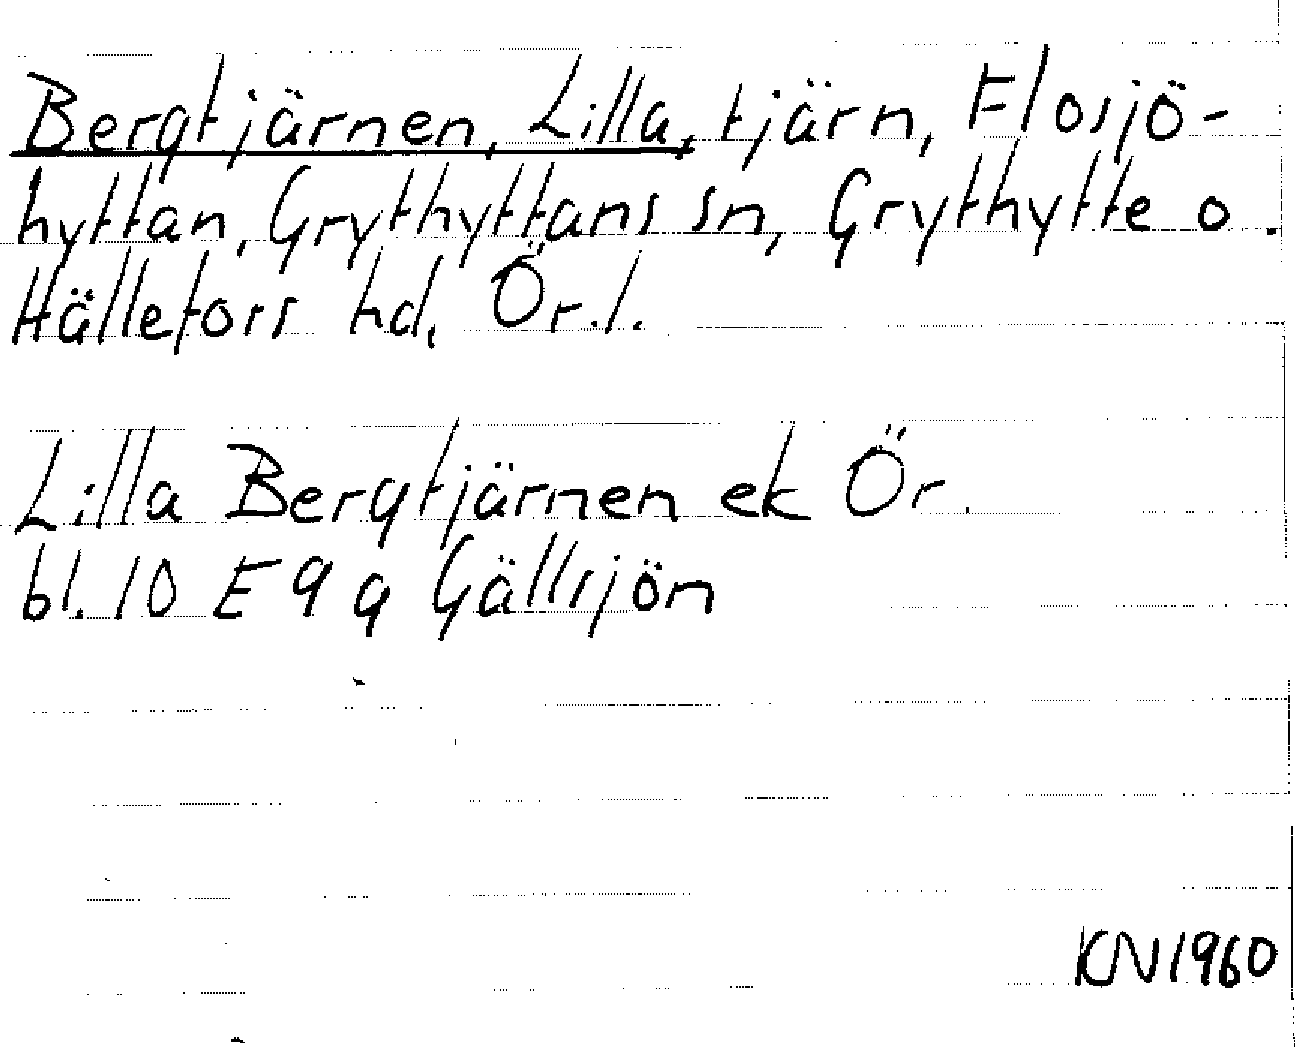 Bergtjärnen, Lilla, tjärn, Flosjö-
hyttan, Grythyttans sn, Grythytte o.
Hällefors hd, Ör.l.
Lilla Bergtjärnen ek Ör.
bl. 10 E 9 g Gällsjön
KN 1960